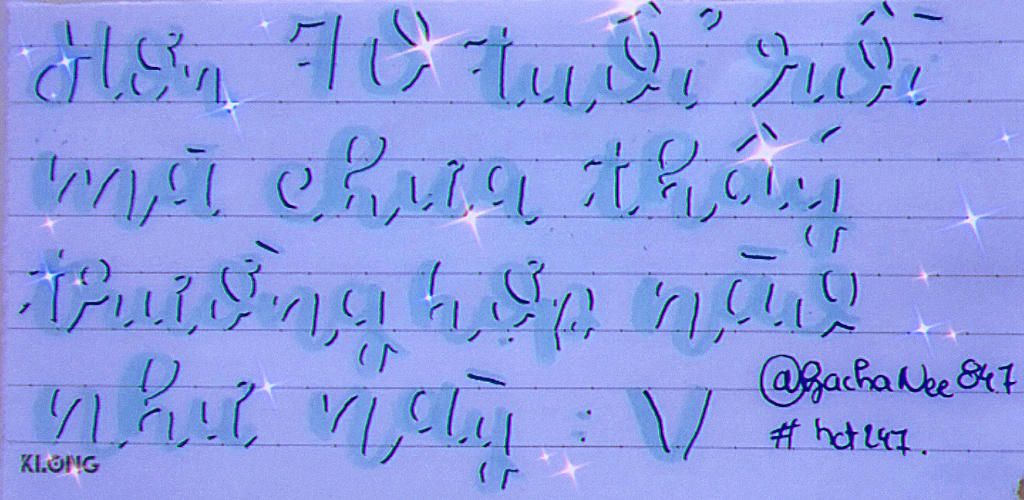 Hơn 70 tuổi rưỡi
mà chưa thấy
trường hợp nào
như này : V
@GachaNee847
# hct247.
KLONG